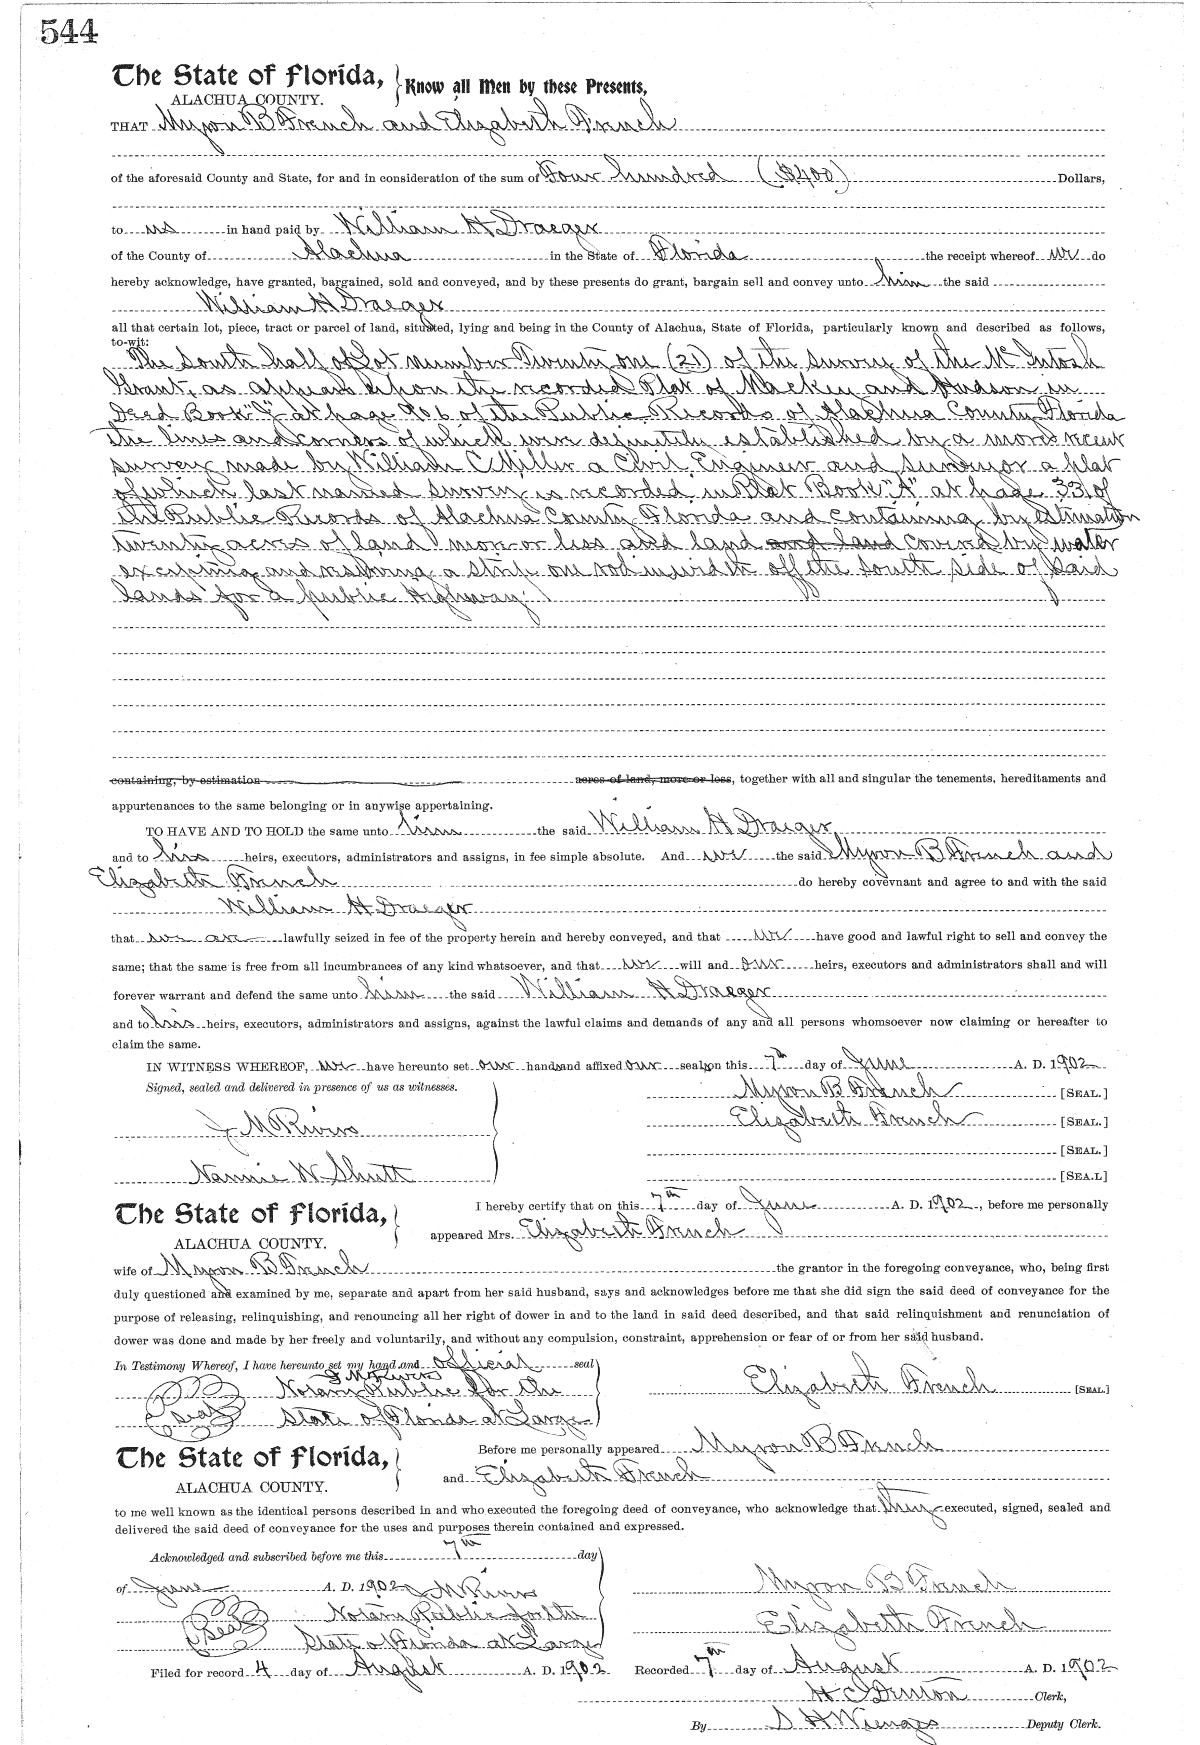 544
The State of Florida, Know all Men by these Presents,
ALACHUA COUNTY.
THAT Myron B French and Elizabeth French
of the aforesaid County and State, for and in consideration of the sum of Four hundred ($400) Dollars,
to us in hand paid by William H Draeger
of the County of Alachua in the State of Florida the receipt whereof we do
hereby acknowledge, have granted, bargained, sold and conveyed, and by these presents do grant, bargain sell and convey unto him the said
William H Draeger
all that certain lot, piece, tract or parcel of land, situated, lying and being in the County of Alachua, State of Florida, particularly known and described as follows,
to-wit:
The South half of Lot number Twenty one (21) of the survey of the McIntosh
Grant, as appears upon the recorded Plat of Mackey and Hudson in
Deed Book at page of the Public Records of Alachua County Florida
the lines and corners of which were definitely established by a more recent
survey made by William C Miller a Civil Engineer and surveyor a plat
of which last named survey is recorded in Plat Book "A" at page 33 of
the Public Records of Alachua County Florida and containing by estimation
twenty acres of land more or less and land and land covered by water
excepting and reserving a strip one rod in width off the south side of said
lands for a public Highway.
containing, by estimation acres of land, more or less, together with all and singular the tenements, hereditaments and
appurtenances to the same belonging or in anywise appertaining.
TO HAVE AND TO HOLD the same unto him the said William H Draeger
and to his heirs, executors, administrators and assigns, in fee simple absolute. And we the said Myron B French and
Elizabeth French do hereby covevnant and agree to and with the said
William H Draeger
that we are lawfully seized in fee of the property herein and hereby conveyed, and that we have good and lawful right to sell and convey the
same; that the same is free from all incumbrances of any kind whatsoever, and that we will and our heirs, executors and administrators shall and will
forever warrant and defend the same unto him the said William H Draeger
and to his heirs, executors, administrators and assigns, against the lawful claims and demands of any and all persons whomsoever now claiming or hereafter to
claim the same.
IN WITNESS WHEREOF, we have hereunto set our hands and affixed our seals on this 7th day of June A. D. 1902
Signed, sealed and delivered in presence of us as witnesses. Myron B French [SEAL.]
Elizabeth French [SEAL.]
J M Rivers [SEAL.]
Nannie W Shutt [SEA.L]
The State of Florida, I hereby certify that on this 7th day of June A. D. 1902, before me personally
ALACHUA COUNTY. appeared Mrs. Elizabeth French
wife of Myron B French the grantor in the foregoing conveyance, who, being first
duly questioned and examined by me, separate and apart from her said husband, says and acknowledges before me that she did sign the said deed of conveyance for the
purpose of releasing, relinquishing, and renouncing all her right of dower in and to the land in said deed described, and that said relinquishment and renunciation of
dower was done and made by her freely and voluntarily, and without any compulsion, constraint, apprehension or fear of or from her said husband.
In Testimony Whereof, I have hereunto set my hand and official seal
J M Rivers
Notary Public for the Elizabeth French [SEAL.]
Seal State of Florida at Large
The State of Florida, Before me personally appeared Myron B French
ALACHUA COUNTY. and Elizabeth French
to me well known as the identical persons described in and who executed the foregoing deed of conveyance, who acknowledge that they executed, signed, sealed and
delivered the said deed of conveyance for the uses and purposes therein contained and expressed.
Acknowledged and subscribed before me this 7th day
of June A. D. 1902 J M Rivers Myron B French
Notary Public for the
Seal State of Florida at Large Elizabeth French
Filed for record 4 day of August A. D. 1902 Recorded 7th day of August A. D. 1902
H C Denton Clerk,
By S H Wienges Deputy Clerk.